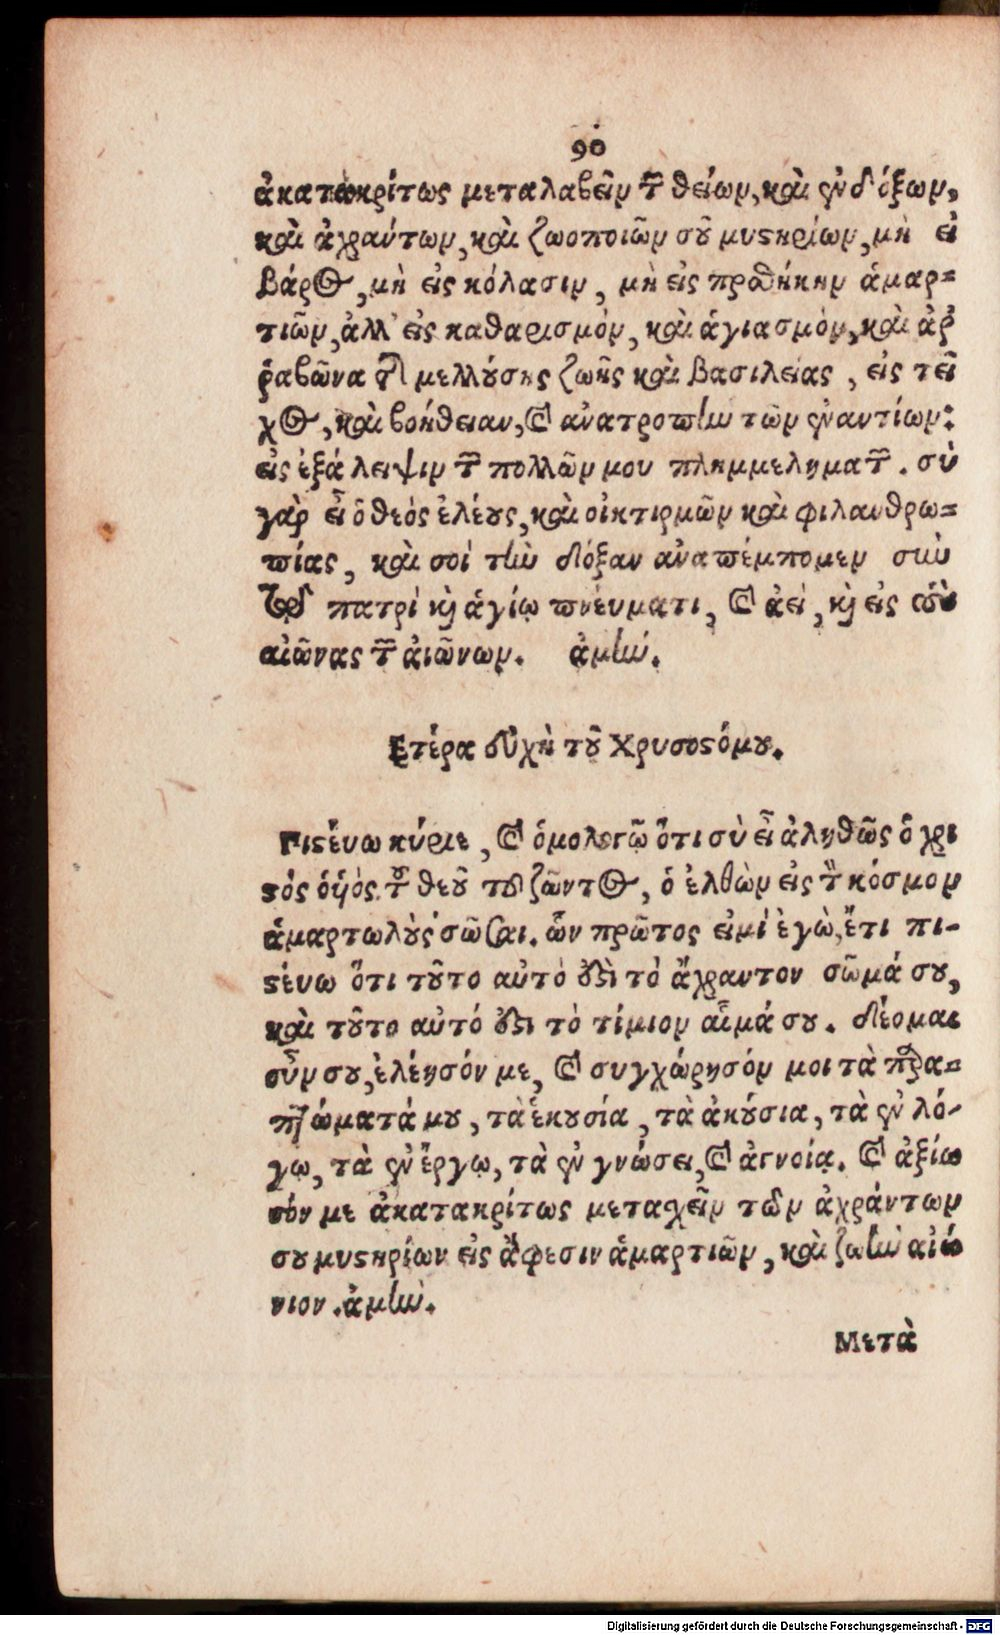 90
ἀκατακρίτως μεταλαβεῖν τῶν θείων, καὶ ἐνδόξων,
καὶ ἀχράντων, καὶ ζωοποιῶν σοῦ μυστηρίων, μὴ εἰ
βάρος, μὴ εἰς κόλασιν, μὴ εἰς προσθήκην ἁμαρ-
τιῶν, ἀλλ' εἰς καθαρισμὸν, καὶ ἁγιασμὸν, καὶ ἀρ
ῥαβῶνα τῆς μελλούσης ζωῆς καὶ βασιλείας, εἰς τεῖ
χος, καὶ βοήθειαν, καὶ ἀνατροπὴν τῶν ἐναντίων:
εἰς ἐξάλειψιν τῶν πολλῶν μου πλημμελημάτων. σὺ
γὰρ εἶ ὁ θεὸς ἐλέους, καὶ οἰκτιρμῶν καὶ φιλανθρω-
πίας, καὶ σοὶ τὴν δόξαν ἀναπέμπομεν σὺν
τῷ πατρὶ καὶ ἁγίῳ πνεύματι, καὶ ἀεὶ, καὶ εἰς τοὺς
αἰῶνας τῶν αἰώνων. ἀμήν.
Ετέρα εὐχὴ τοῦ Χρυσοστόμου.
Πιστεύω κύριε, καὶ ὁμολογῶ ὅτι σὺ εἶ ἀληθῶς ὁ χρι
στὸς ὁ υἱὸς τοῦ θεοῦ τοῦ ζῶντος, ὁ ἐλθὼν εἰς τὸν κόσμον
ἁμαρτωλοὺς σῶσαι. ὧν πρῶτος εἰμὶ ἐγὼ, ἔτι πι-
στεύω ὅτι τοῦτο αὐτὸ ἐστὶ τὸ ἄχραντον σῶμά σου,
καὶ τοῦτο αὐτό ἐστι τὸ τίμιον αἷμά σου. δέομαι
οὖν σου, ἐλέησόν με, καὶ συγχώρησόν μοι τὰ παρα-
πτώματά μου, τὰ ἑκουσία, τὰ ἀκούσια, τὰ ἐν λό-
γῳ, τὰ ἐν ἔργῳ, τὰ ἐν γνώσει, καὶ ἀγνοίᾳ. καὶ ἀξίω
σόν με ἀκατακρίτως μετασχεῖν τῶν ἀχράντων
σου μυστηρίων εἰς ἄφεσιν ἁμαρτιῶν, καὶ ζωὴν αἰώ
νιον. ἀμήν.
Μετὰ
Digitalisierung gefördert durch die Deutsche Forschungsgemeinschaft - DFG